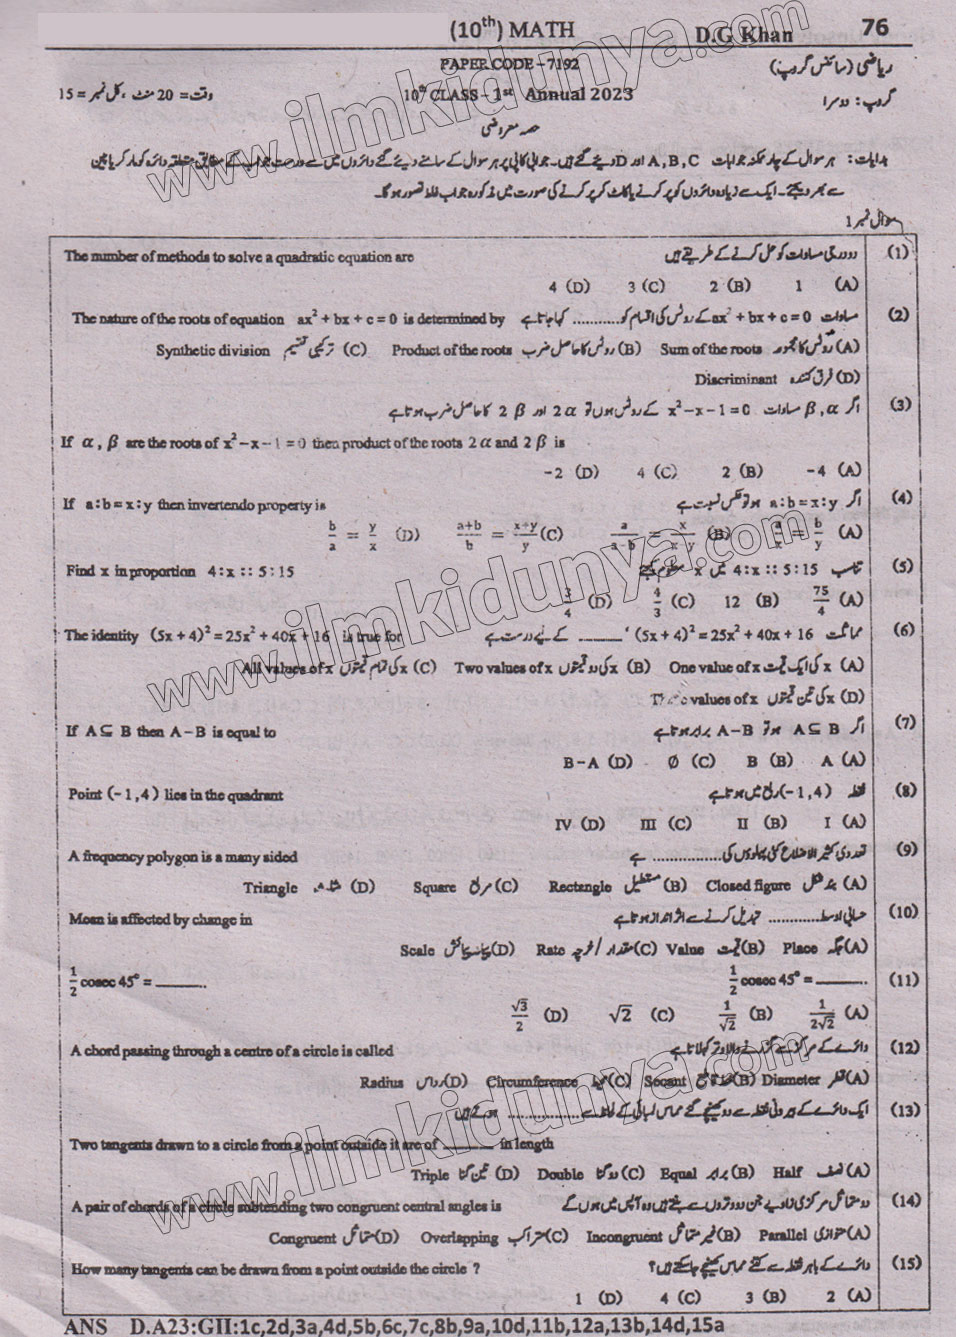 (10th) MATH D.G Khan 76
PAPER CODE – 7192 ریاضی (سائنس گروپ)
وقت= 20 منٹ ، کل نمبر = 15 10th CLASS – 1st Annual 2023 گروپ: دوسرا
حصہ معروضی
ہدایات: ہر سوال کے چار ممکنہ جوابات A, B, C اور D دیئے گئے ہیں۔ جوابی کاپی پر ہر سوال کے سامنے دیئے گئے دائروں میں سے درست جواب کے مطابق متعلقہ دائرہ کو مارکر یا پین
سے بھر دیجئے۔ ایک سے زیادہ دائروں کو پر کرنے یا کاٹ کر پر کرنے کی صورت میں مذکورہ جواب غلط تصور ہو گا۔
سوال نمبر 1
The number of methods to solve a quadratic equation are دو درجی مساوات کو حل کرنے کے طریقے ہیں (1)
4 (D) 3 (C) 2 (B) 1 (A)
The nature of the roots of equation ax² + bx + c = 0 is determined by مساوات ax² + bx + c = 0 کے روٹس کی اقسام کو ............ کہا جاتا ہے (2)
Synthetic division ترکیبی تقسیم (C) Product of the roots روٹس کا حاصل ضرب (B) Sum of the roots روٹس کا مجموعہ (A)
Discriminant فرق کنندہ (D)
اگر α , β مساوات x² – x – 1 = 0 کے روٹس ہوں تو 2α اور 2β کا حاصل ضرب ہوتا ہے (3)
If α , β are the roots of x² – x – 1 = 0 then product of the roots 2α and 2β is
-2 (D) 4 (C) 2 (B) -4 (A)
If a : b = x : y then invertendo property is اگر a : b = x : y ہو تو عکس نسبت ہے (4)
b/a = y/x (D) a+b/b = x+y/y (C) a/a-b = x/x-y (B) a/x = b/y (A)
Find x in proportion 4 : x :: 5 : 15 تناسب 4 : x :: 5 : 15 میں x معلوم کیجئے (5)
3/4 (D) 4/3 (C) 12 (B) 75/4 (A)
The identity (5x + 4)² = 25x² + 40x + 16 is true for مماثلت (5x + 4)² = 25x² + 40x + 16 ' ______ کے لیے درست ہے (6)
All values of x x کی تمام قیمتوں (C) Two values of x x کی دو قیمتوں (B) One value of x x کی ایک قیمت (A)
values of x x کی تین قیمتوں (D)
If A ⊆ B then A – B is equal to اگر A ⊆ B ہو تو A – B برابر ہوتا ہے (7)
B – A (D) Ø (C) B (B) A (A)
Point (– 1 , 4) lies in the quadrant نقطہ (– 1 , 4) ربع میں ہوتا ہے (8)
IV (D) III (C) II (B) I (A)
A frequency polygon is a many sided تعددی کثیر الاضلاع کئی پہلوؤں کی .............. ہے (9)
Triangle مثلث (D) Square مربع (C) Rectangle مستطیل (B) Closed figure بند شکل (A)
Mean is affected by change in حسابی اوسط ............ تبدیل کرنے سے اثر انداز ہوتا ہے (10)
Scale پیمانہ پیمائش (D) Rate مقدار / شرح (C) Value قیمت (B) Place جگہ (A)
1/2 cosec 45° = ______. 1/2 cosec 45° = ______. (11)
√3/2 (D) √2 (C) 1/√2 (B) 1/2√2 (A)
A chord passing through a centre of a circle is called دائرے کے مرکز سے گزرنے والا وتر کہلاتا ہے (12)
Radius رداس (D) Circumference محیط (C) Secant خط قاطع (B) Diameter قطر (A)
ایک دائرے کے بیرونی نقطہ سے دو کھینچے گئے مماس لمبائی کے لحاظ سے ............ ہوتے ہیں (13)
Two tangents drawn to a circle from a point outside it are of ______ in length
Triple تین گنا (D) Double دو گنا (C) Equal برابر (B) Half نصف (A)
A pair of chords of a circle subtending two congruent central angles is دو متماثل مرکزی زاویے جن دو وتروں سے بنتے ہیں وہ آپس میں ہوں گے (14)
Congruent متماثل (D) Overlapping متراکب (C) Incongruent غیر متماثل (B) Parallel متوازی (A)
How many tangents can be drawn from a point outside the circle ? دائرے کے باہر نقطہ سے کتنے مماس کھینچے جا سکتے ہیں؟ (15)
1 (D) 4 (C) 3 (B) 2 (A)
ANS D.A23:GII:1c,2d,3a,4d,5b,6c,7c,8b,9a,10d,11b,12a,13b,14d,15a
www.ilmkidunya.com
www.ilmkidunya.com
www.ilmkidunya.com